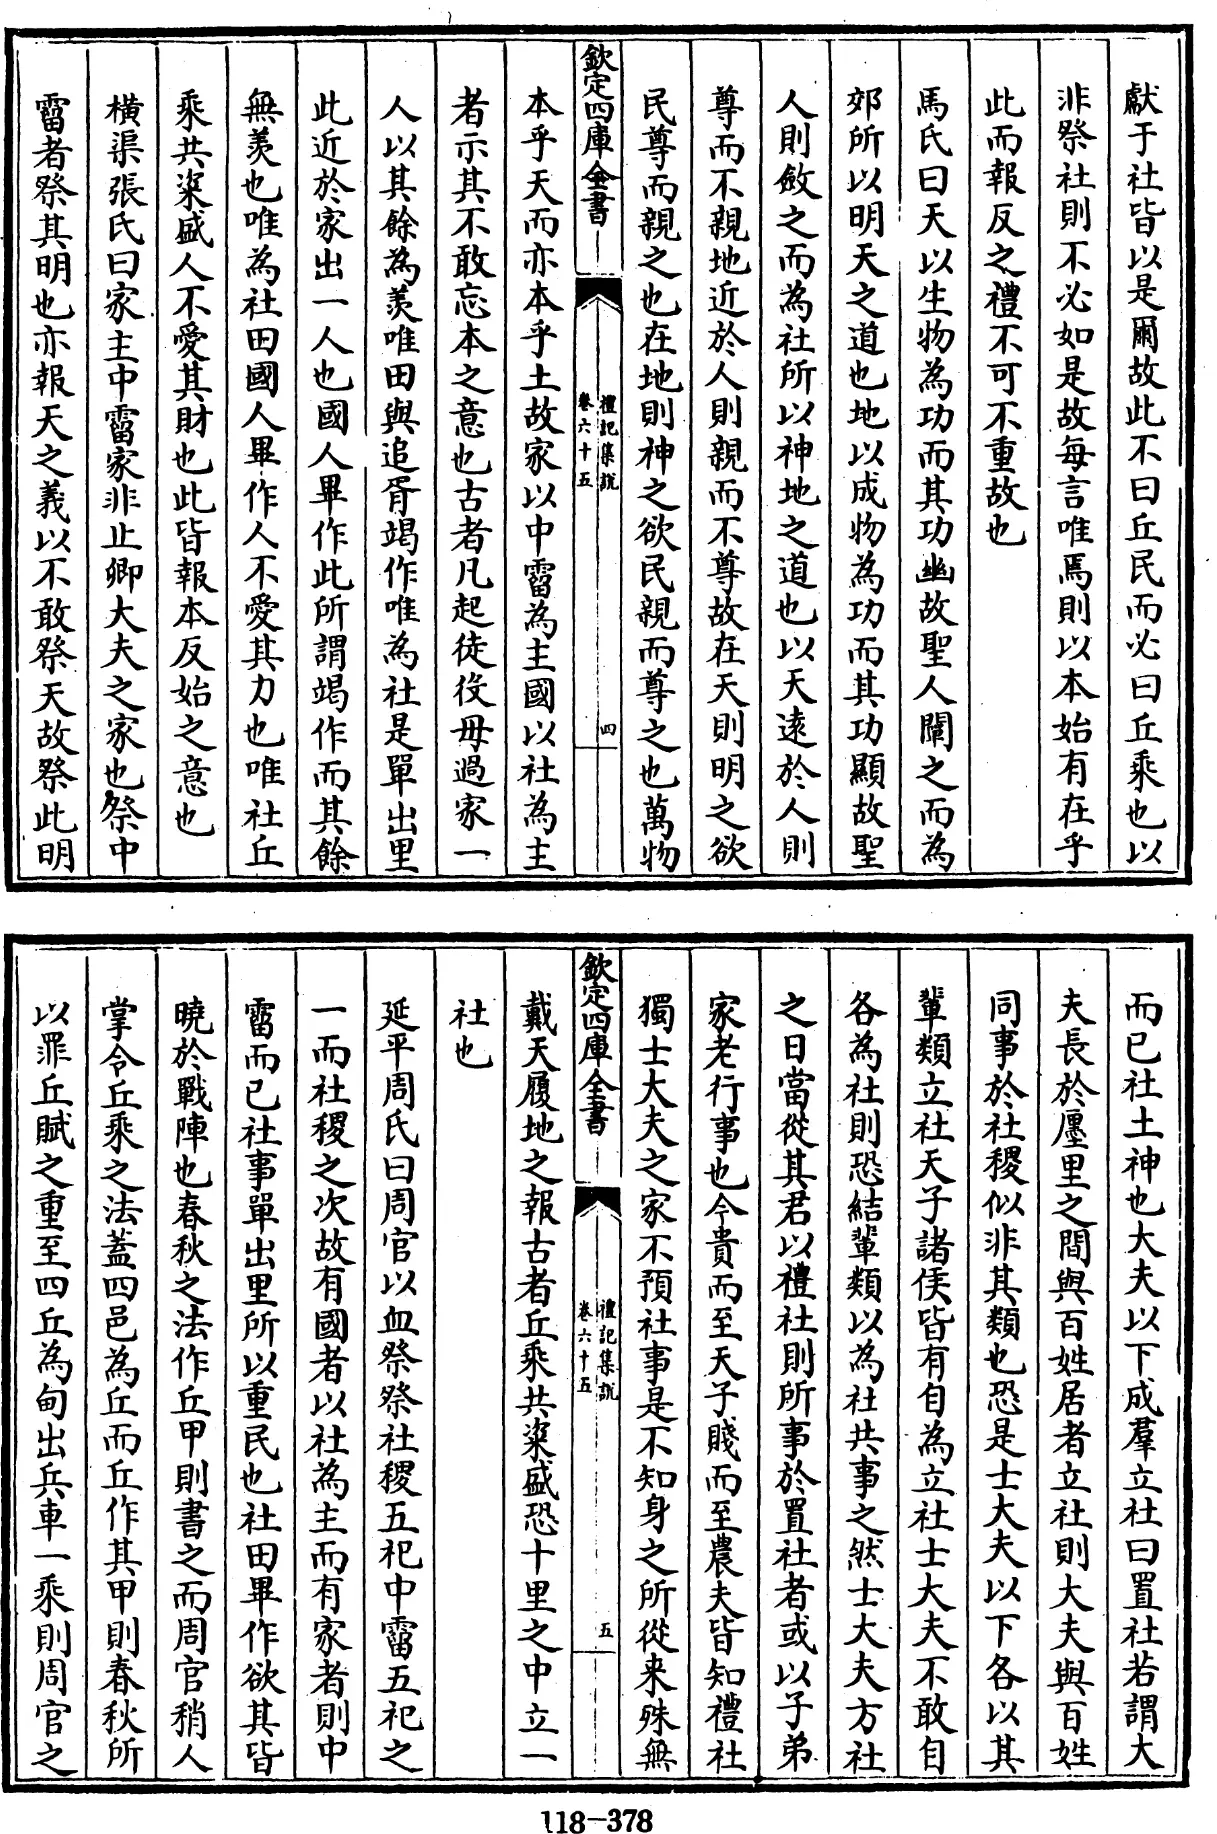 獻于社皆以是爾故此不曰丘民而必曰丘乘也以
非祭社則不必如是故每言唯焉則以本始有在乎
此而報反之禮不可不重故也
馬氏曰天以生物為功而其功幽故聖人闡之而為
郊所以明天之道也地以成物為功而其功顯故聖
人則斂之而為社所以神地之道也以天逺於人則
尊而不親地近於人則親而不尊故在天則明之欲
民尊而親之也在地則神之欲民親而尊之也萬物
欽定四庫全書
禮記集說
卷六十五
四
本乎天而亦本乎土故家以中霤為主國以社為主
者示其不敢忘本之意也古者凡起徒役毋過家一
人以其餘為羨唯田與追胥竭作唯為社是單出里
此近於家出一人也國人畢作此所謂竭作而其餘
無羨也唯為社田國人畢作人不愛其力也唯社丘
乘共粢盛人不愛其財也此皆報本反始之意也
橫渠張氏曰家主中霤家非止卿大夫之家也祭中
霤者祭其明也亦報天之義以不敢祭天故祭此明
而已社土神也大夫以下成羣立社曰置社若謂大
夫長於廛里之間與百姓居者立社則大夫與百姓
同事於社稷似非其類也恐是士大夫以下各以其
輩類立社天子諸侯皆有自為立社士大夫不敢自
各為社則恐結輩類以為社共事之然士大夫方社
之日當從其君以禮社則所事於置社者或以子弟
家老行事也今貴而至天子賤而至農夫皆知禮社
獨士大夫之家不預社事是不知身之所從來殊無
欽定四庫全書
禮記集說
卷六十五
五
戴天履地之報古者丘乘共粢盛恐十里之中立一
社也
延平周氏曰周官以血祭祭社稷五祀中霤五祀之
一而社稷之次故有國者以社為主而有家者則中
霤而已社事單出里所以重民也社田畢作欲其皆
曉於戰陣也春秋之法作丘甲則書之而周官稍人
掌令丘乘之法蓋四邑為丘而丘作其甲則春秋所
以罪丘賦之重至四丘為甸出兵車一乘則周官之
118-378